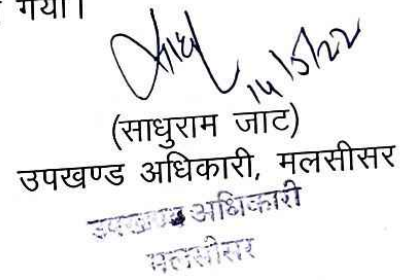 गया।
14/5/22
(साधुराम जाट)
उपखण्ड अधिकारी, मलसीसर
उपखण्ड अधिकारी
मलसीसर